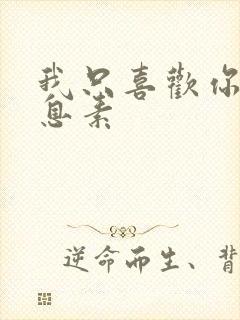 我只喜歡你
息素
逆命而生、背